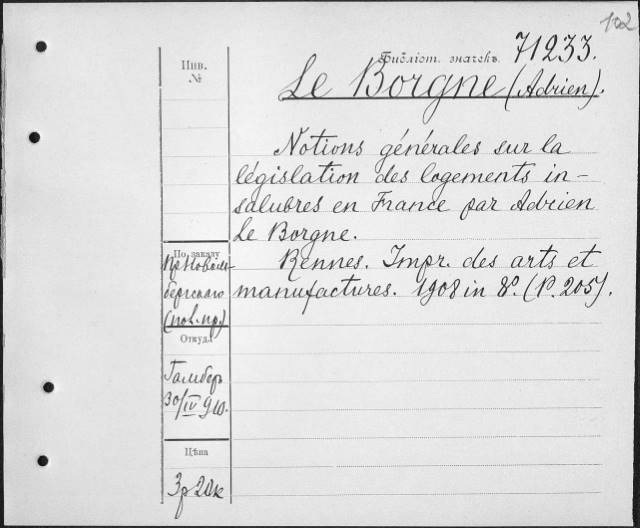 102
Библіот. значекъ. 71233.
Инв.
№
Le Borgne (Adrien).
Notions générales sur la
législation des logements in-
salubres en France par Adrien
Le Borgne.
Rennes. Impr. des arts et
manufactures. 1908 in 8º. (P. 205).
По заказу
Пр. Новом-
бергскаго
(пов. пр.)
Откуд.
Гамбер
30/IV 910.
Цѣна
3р 20к